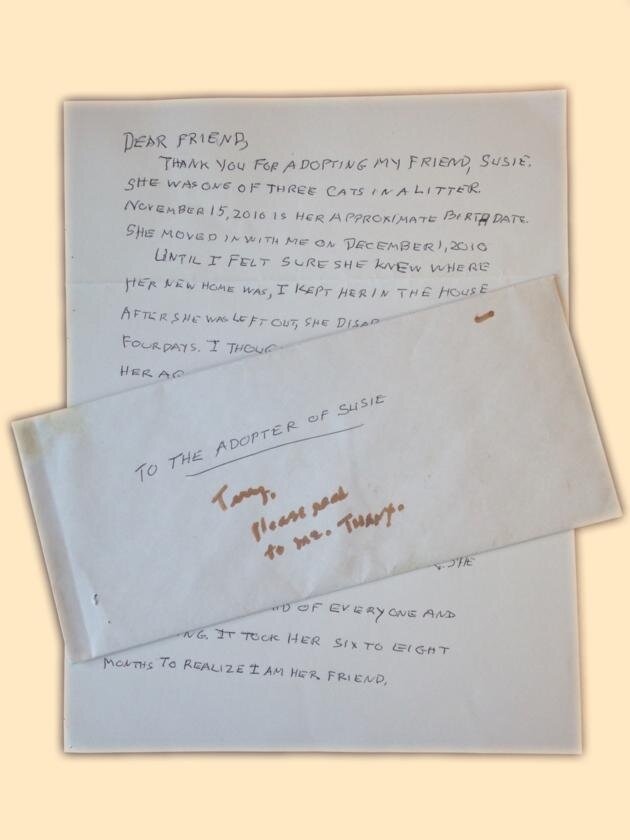 DEAR FRIEND,
THANK YOU FOR ADOPTING MY FRIEND, SUSIE.
SHE WAS ONE OF THREE CATS IN A LITTER.
NOVEMBER 15, 2010 IS HER APPROXIMATE BIRTH DATE.
SHE MOVED IN WITH ME ON DECEMBER 1, 2010
UNTIL I FELT SURE SHE KNEW WHERE
HER NEW HOME WAS, I KEPT HER IN THE HOUSE
AFTER SHE WAS LEFT OUT, SHE
FOUR DAYS. I
HER
TO THE ADOPTER OF SUSIE
Terry,
Please read
to me. Thanx.
SHE
OF EVERYONE AND
IT TOOK HER SIX TO EIGHT
MONTHS TO REALIZE I AM HER FRIEND.